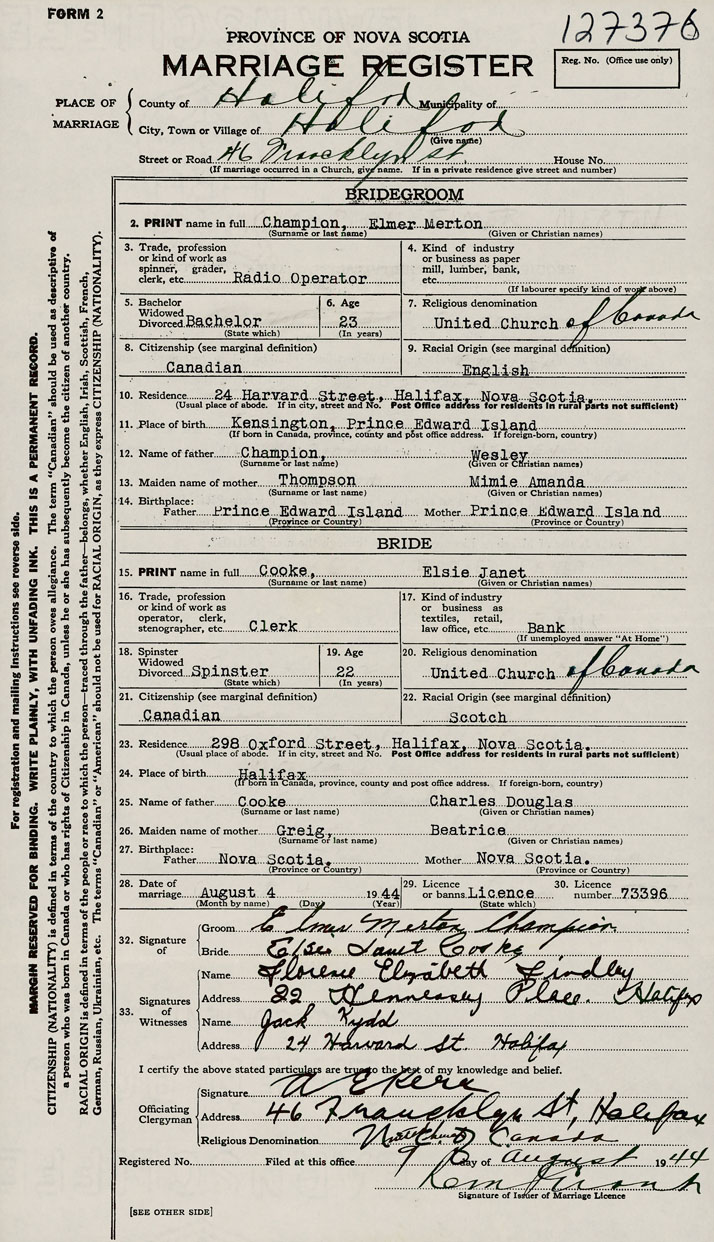 FORM 2
127376
PROVINCE OF NOVA SCOTIA
MARRIAGE REGISTER
Reg. No. (Office use only)
PLACE OF MARRIAGE
County of Halifax Municipality of
City, Town or Village of Halifax
(Give name)
Street or Road 46 Francklyn St House No.
(If marriage occurred in a Church, give name. If in a private residence give street and number)
BRIDEGROOM
2. PRINT name in full Champion, Elmer Merton
(Surname or last name) (Given or Christian names)
3. Trade, profession or kind of work as spinner, grader, clerk, etc. Radio Operator
4. Kind of industry or business as paper mill, lumber, bank, etc.
(If labourer specify kind of work above)
5. Bachelor Widowed Divorced Bachelor
(State which)
6. Age 23
(In years)
7. Religious denomination
United Church of Canada
8. Citizenship (see marginal definition)
Canadian
9. Racial Origin (see marginal definition)
English
10. Residence 24 Harvard Street, Halifax, Nova Scotia.
(Usual place of abode. If in city, street and No. Post Office address for residents in rural parts not sufficient)
11. Place of birth Kensington, Prince Edward Island
(If born in Canada, province, county and post office address. If foreign-born, country)
12. Name of father Champion, Wesley
(Surname or last name) (Given or Christian names)
13. Maiden name of mother Thompson Mimie Amanda
(Surname or last name) (Given or Christian names)
14. Birthplace:
Father Prince Edward Island Mother Prince Edward Island
(Province or Country) (Province or Country)
BRIDE
15. PRINT name in full Cooke, Elsie Janet
(Surname or last name) (Given or Christian names)
16. Trade, profession or kind of work as operator, clerk, stenographer, etc. Clerk
17. Kind of industry or business as textiles, retail, law office, etc. Bank
(If unemployed answer "At Home")
18. Spinster Widowed Divorced Spinster
(State which)
19. Age 22
(In years)
20. Religious denomination
United Church of Canada
21. Citizenship (see marginal definition)
Canadian
22. Racial Origin (see marginal definition)
Scotch
23. Residence 298 Oxford Street, Halifax, Nova Scotia.
(Usual place of abode. If in city, street and No. Post Office address for residents in rural parts not sufficient)
24. Place of birth Halifax
(If born in Canada, province, county and post office address. If foreign-born, country)
25. Name of father Cooke Charles Douglas
(Surname or last name) (Given or Christian names)
26. Maiden name of mother Greig, Beatrice
(Surname or last name) (Given or Christian names)
27. Birthplace:
Father Nova Scotia. Mother Nova Scotia.
(Province or Country) (Province or Country)
28. Date of marriage August 4 1944
(Month by name) (Day) (Year)
29. Licence or banns Licence
(State which)
30. Licence number 73396
32. Signature of
Groom Elmer Merton Champion
Bride Elsie Janet Cooke
33. Signatures of Witnesses
Name Florence Elizabeth Findley
Address 82 Hennessey Place. Halifax
Name Jack Kydd
Address 24 Harvard St. Halifax
I certify the above stated particulars are true to the best of my knowledge and belief.
Officiating Clergyman
Signature A E Kerr
Address 46 Francklyn St, Halifax
Religious Denomination United Church Canada
Registered No. Filed at this office 9 day of August 1944
Signature of Issuer of Marriage Licence
[SEE OTHER SIDE]
For registration and mailing instructions see reverse side.
MARGIN RESERVED FOR BINDING. WRITE PLAINLY, WITH UNFADING INK. THIS IS A PERMANENT RECORD.
CITIZENSHIP (NATIONALITY) is defined in terms of the country to which the person owes allegiance. The term "Canadian" should be used as descriptive of
a person who was born in Canada or who has rights of Citizenship in Canada, unless he or she has subsequently become the citizen of another country.
RACIAL ORIGIN is defined in terms of the people or race to which the person—traced through the father—belongs, whether English, Irish, Scottish, French,
German, Russian, Ukrainian, etc. The terms "Canadian" or "American" should not be used for RACIAL ORIGIN, as they express CITIZENSHIP (NATIONALITY).